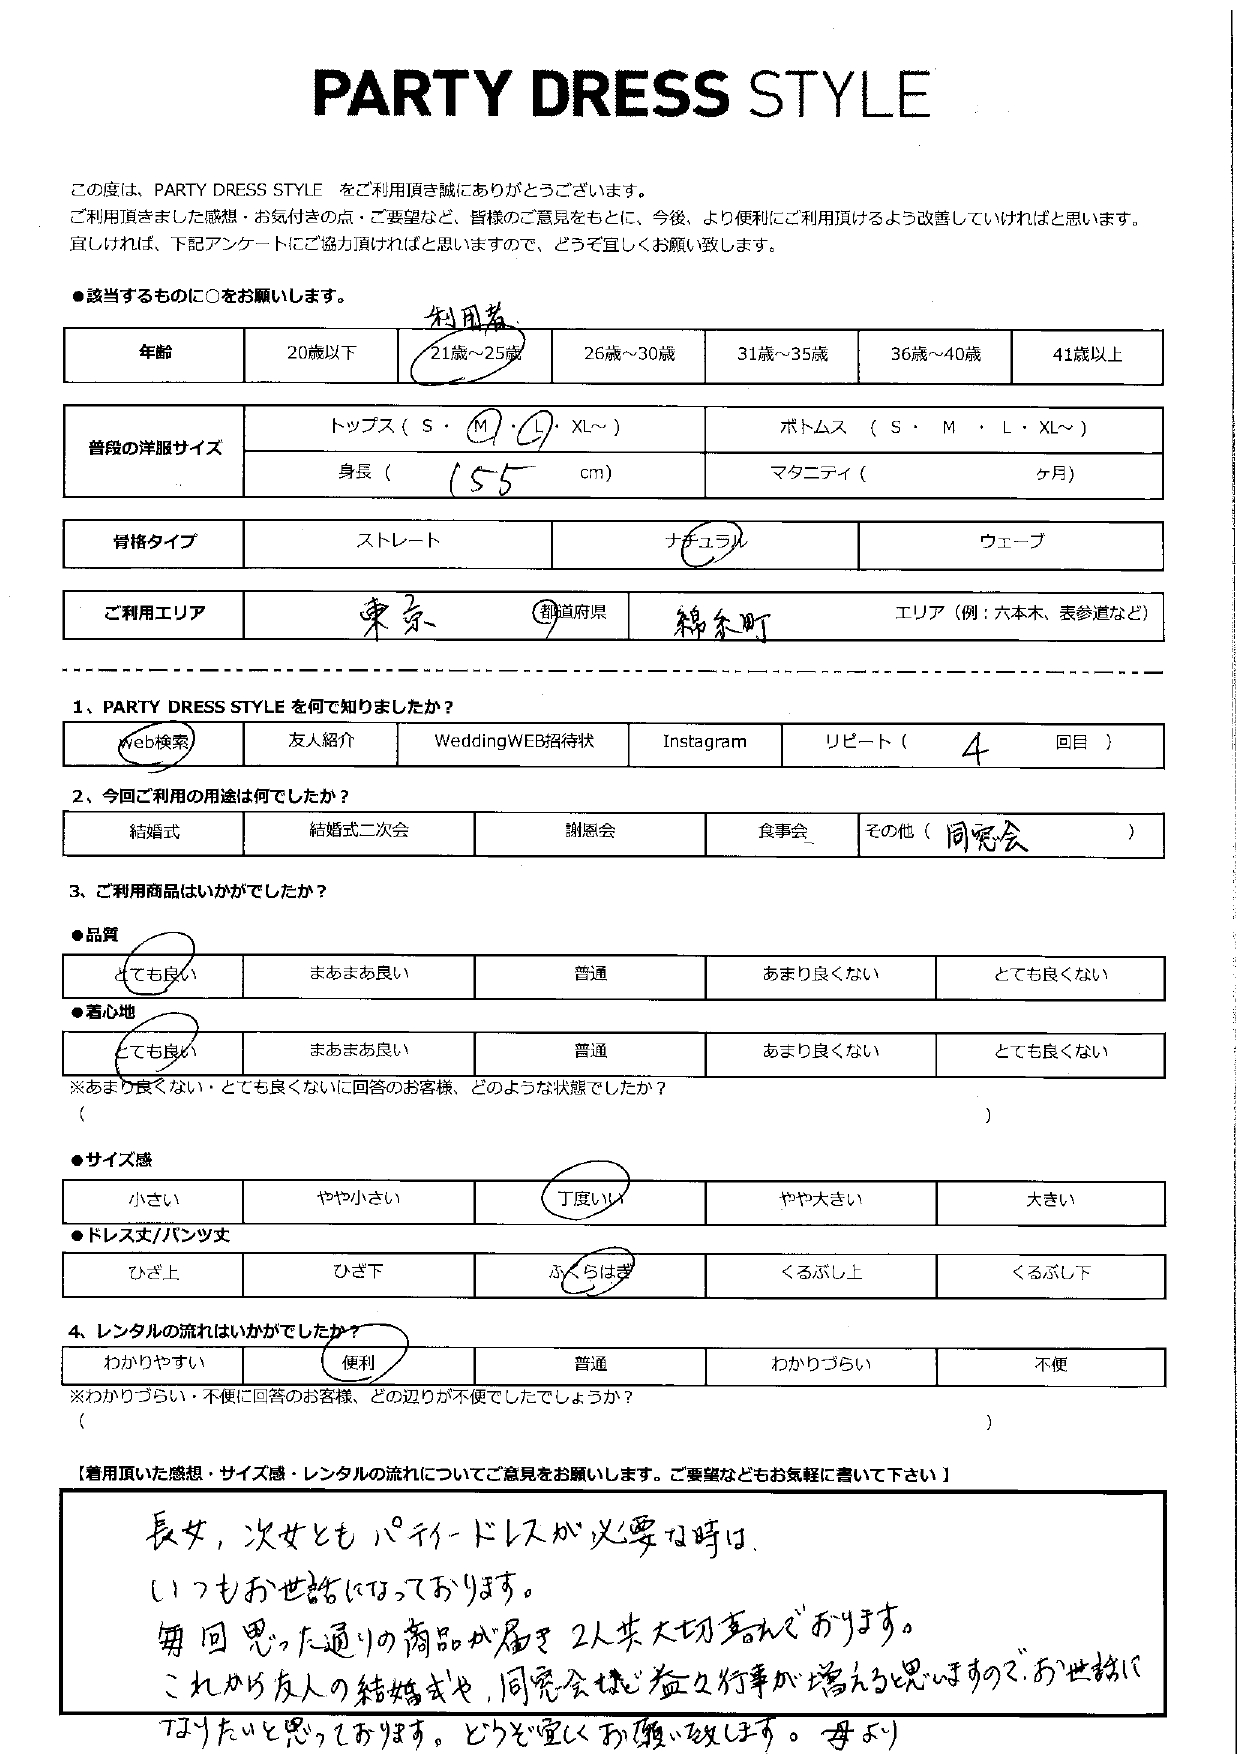 PARTY DRESS STYLE
この度は、PARTY DRESS STYLE をご利用頂き誠にありがとうございます。
ご利用頂きました感想・お気付きの点・ご要望など、皆様のご意見をもとに、今後、より便利にご利用頂けるよう改善していければと思います。
宜しければ、下記アンケートにご協力頂ければと思いますので、どうぞ宜しくお願い致します。
●該当するものに○をお願いします。
利用者
年齢 20歳以下 21歳～25歳 26歳～30歳 31歳～35歳 36歳～40歳 41歳以上
普段の洋服サイズ トップス ( S ・ M ・ L ・ XL～ ) ボトムス ( S ・ M ・ L ・ XL～ )
身長 ( 155 cm) マタニティ ( ヶ月)
骨格タイプ ストレート ナチュラル ウェーブ
ご利用エリア 東京 都道府県 錦糸町 エリア（例：六本木、表参道など）
1、PARTY DRESS STYLE を何で知りましたか？
Web検索 友人紹介 WeddingWEB招待状 Instagram リピート ( 4 回目 )
2、今回ご利用の用途は何でしたか？
結婚式 結婚式二次会 謝恩会 食事会 その他 ( 同窓会 )
3、ご利用商品はいかがでしたか？
●品質
とても良い まあまあ良い 普通 あまり良くない とても良くない
●着心地
とても良い まあまあ良い 普通 あまり良くない とても良くない
※あまり良くない・とても良くないに回答のお客様、どのような状態でしたか？
( )
●サイズ感
小さい やや小さい 丁度いい やや大きい 大きい
●ドレス丈/パンツ丈
ひざ上 ひざ下 ふくらはぎ くるぶし上 くるぶし下
4、レンタルの流れはいかがでしたか？
わかりやすい 便利 普通 わかりづらい 不便
※わかりづらい・不便に回答のお客様、どの辺りが不便でしたでしょうか？
( )
【着用頂いた感想・サイズ感・レンタルの流れについてご意見をお願いします。ご要望などもお気軽に書いて下さい 】
長女, 次女とも パーティードレスが必要な時は、
いつもお世話になっております。
毎回 思った通りの商品が届き 2人共 大切喜んでおります。
これから友人の結婚式や、同窓会など益々行事が増えると思いますので、お世話に
なりたいと思っております。どうぞ宜しくお願い致します。母より